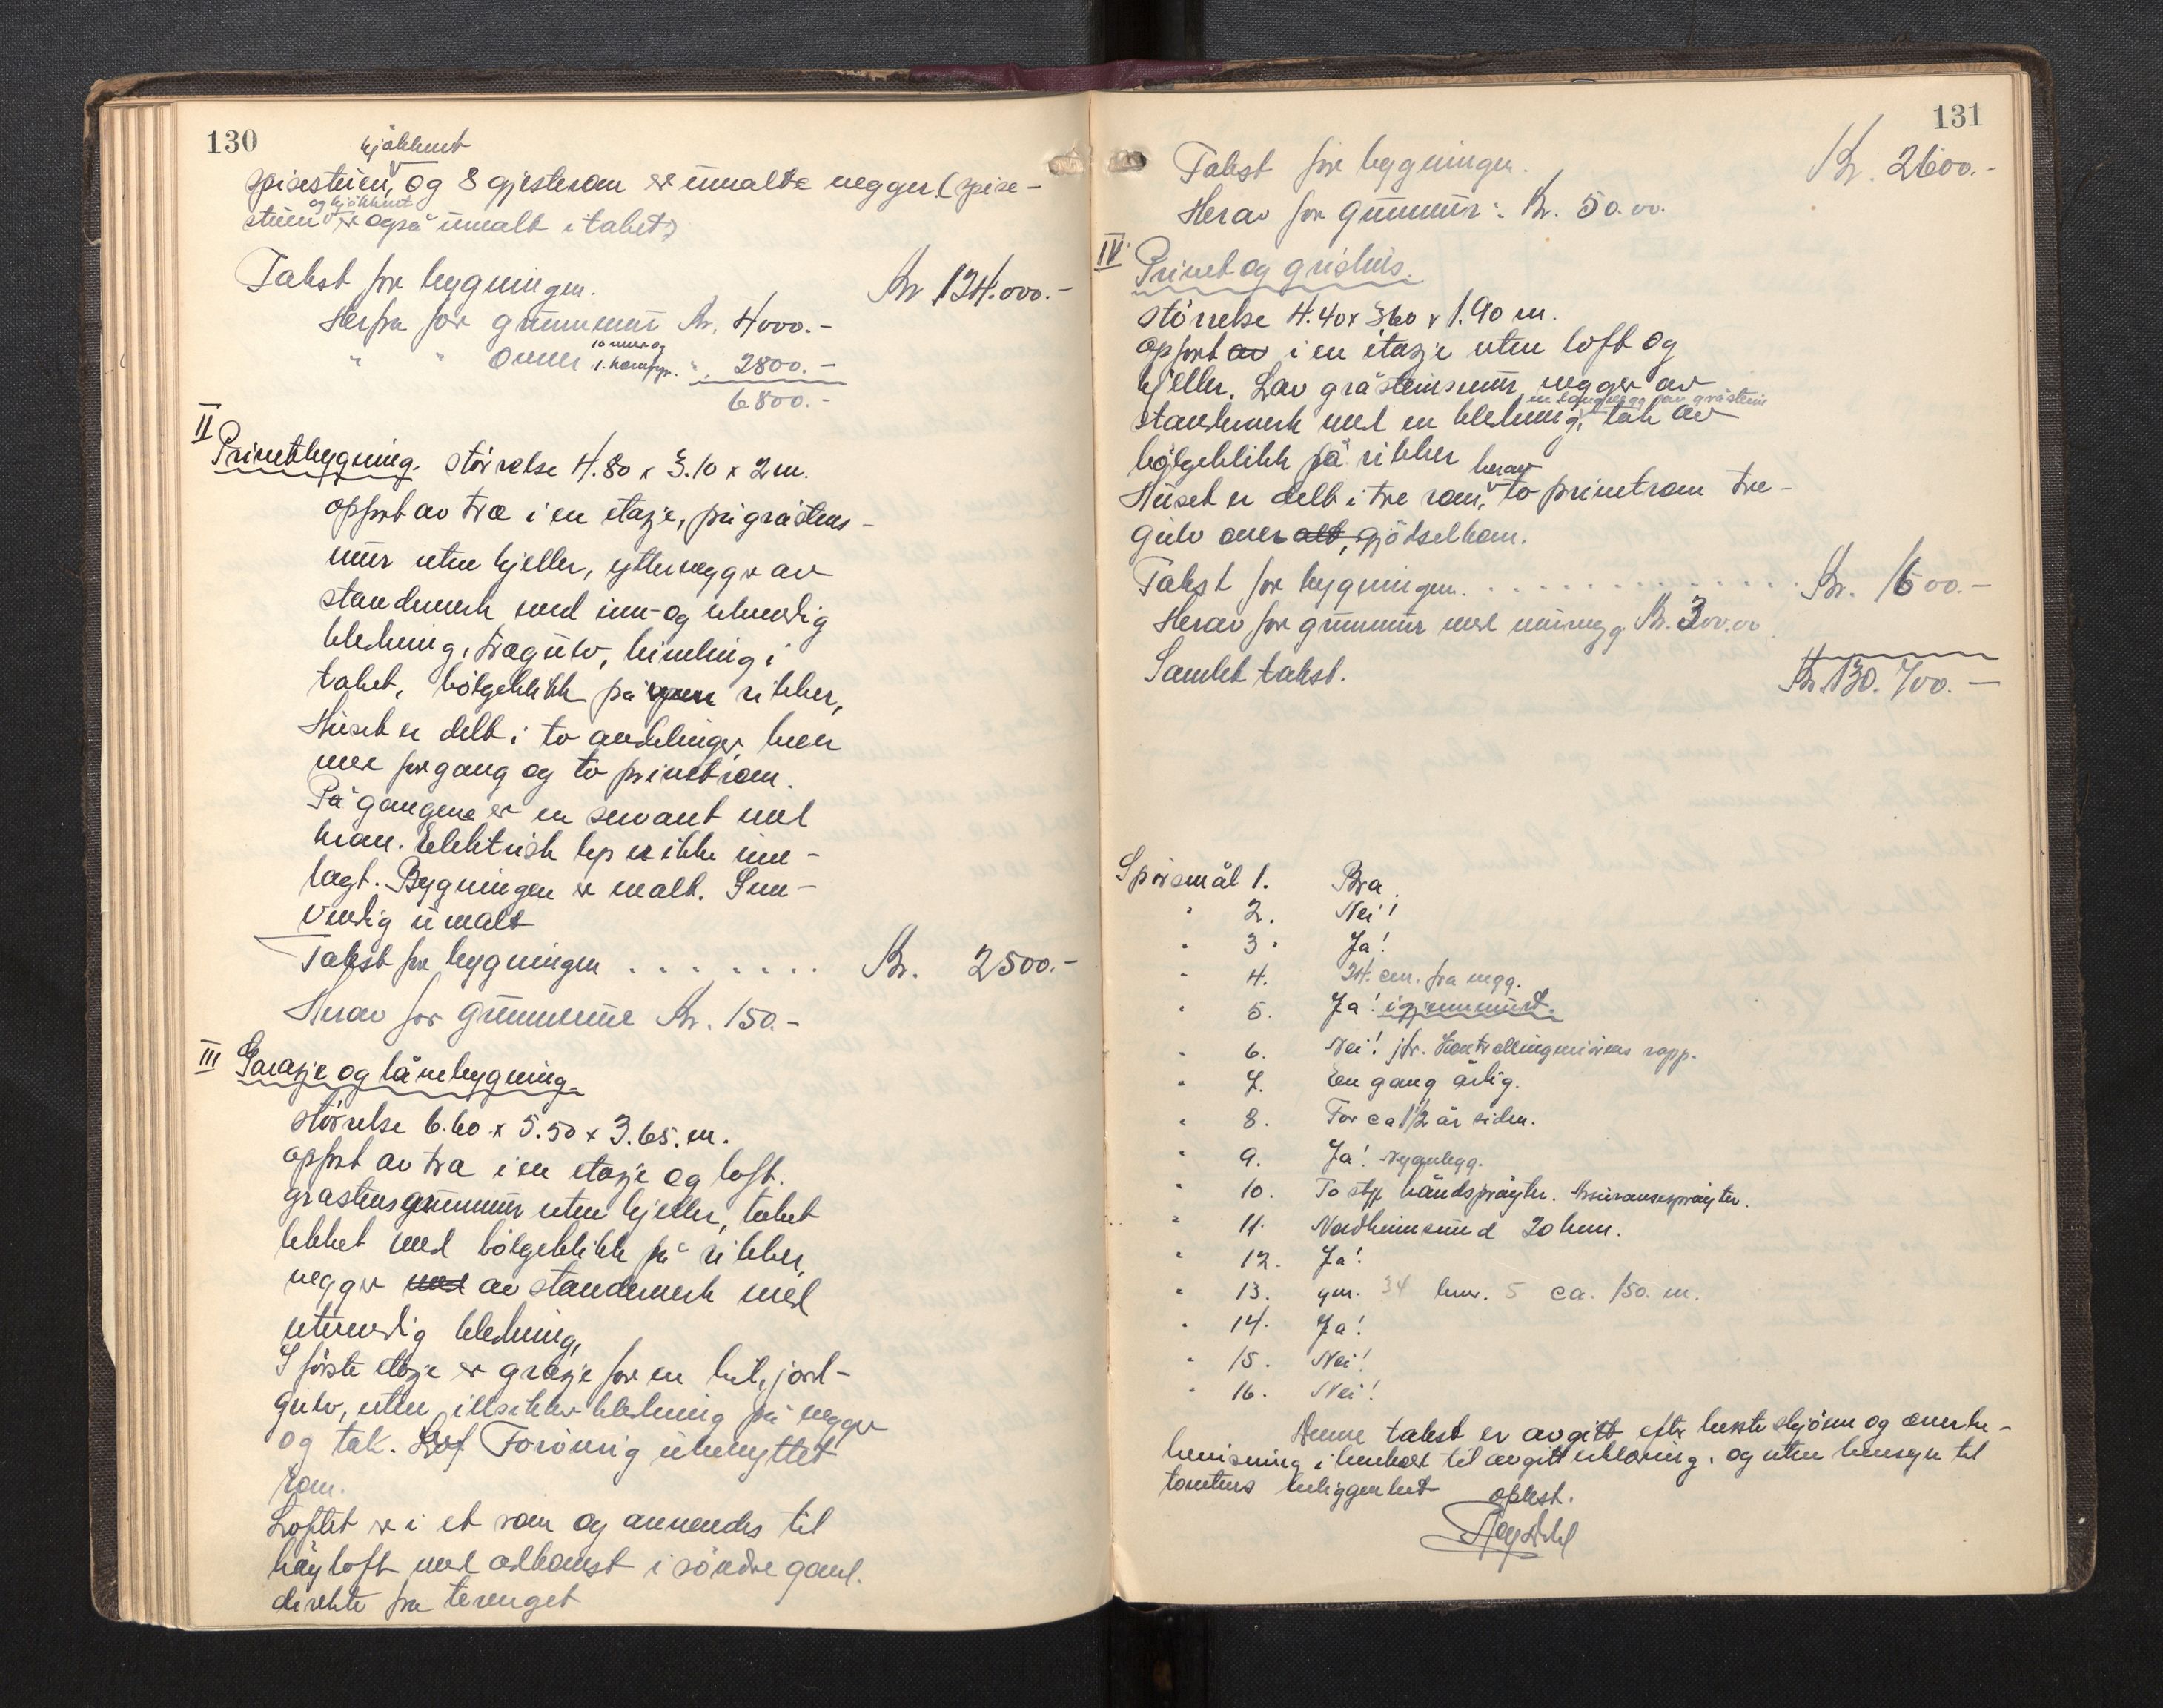 130
kjökkenet
spisestuen, og 8 gjesterom er umalte vegger. (spise-
og kjökkenet
stuen er også umalt i taket)
Takst for bygningen. Kr 124.000.-
Herfra for grunnmur Kr. 4000.-
" " Ovner 10 ovner og 1. komfyr. " 2800.-
6800.-
II Privetbygning. störrelse 4.80 x 3.10 x 2 m.
opfört av træ i en etasje, på gråstens-
mur uten kjeller, yttervegger av
standverk med inn- og utvendig
kledning, trægulv, himling i
taket, bölgeblikk på rikker,
Huset er delt i to avdelinger, hver
med forgang og to privetrom.
På gangene er en servant med
kran. Elektrisk lys er ikke inn-
lagt. Bygningen er malt. Inn-
vendig umalt
Takst for bygningen . . . . . . . Kr. 2500.-
Herav for grunnmur Kr. 150.-
III Garasje og lånebygning.
störrelse 6.60 x 5.50 x 3.65. m.
opfört av træ i en etasje og loft.
gråstensgrunnmur uten kjeller, taket
tekket med bölgeblikk på rikker,
vegger med av standverk med
utvendig kledning,
I förste etasje er grasje for en bil, jord-
gulv, uten illsikker kledning på vegger
og tak. Lof Forövrig ubenyttet
rom.
Loftet er i et rom og anvendes til
höyloft med adkomst i söndre gavl.
direkte fra terenget
131
Takst for bygningen. Kr. 2600.-
Herav for grunnmur: Kr. 50.00.
IV Privet og grishus.
störrelse 4.40 x 3.60 x 1.90 m.
opfört av i en etasje uten loft og
kjeller. Lav gråsteinsmur, vegger av
en langvegg av gråstein
standverk med en kledning, tak av
bölgeblikk på rikker
herav
Huset er delt i tre rom, to privetrom tre-
gulv over alt, gjödselkom.
Takst for bygningen. . . . . . . . . . . . . Kr. 1600.-
Herav for grunnmur med murvegg Kr. 300.00
Samlet takst. Kr. 130.700.-
Spörsmål 1. Bra.
" 2. Nei!
" 3. Ja!
" 4. 24. cm. fra vegg.
" 5. Ja! i grunnmuret.
" 6. Nei! jfr. Kontrollingeniörens rapp.
" 7. En gang årlig.
" 8. For ca 1½ år siden.
" 9. Ja! Nyanlegg.
" 10. To stk. håndspröyter. Assuransespröyter.
" 11. Nordheimsund 20 km.
" 12. Ja!
" 13. gnr. 34 bnr. 5 ca. 150. m.
" 14. Ja!
" 15. Nei!
" 16. Nei!
Denne takst er avgitt efter beste skjönn og overbe-
visning i henhold til avgitt erklæring. og uten hensyn til
tomtens beliggenhet oplest.